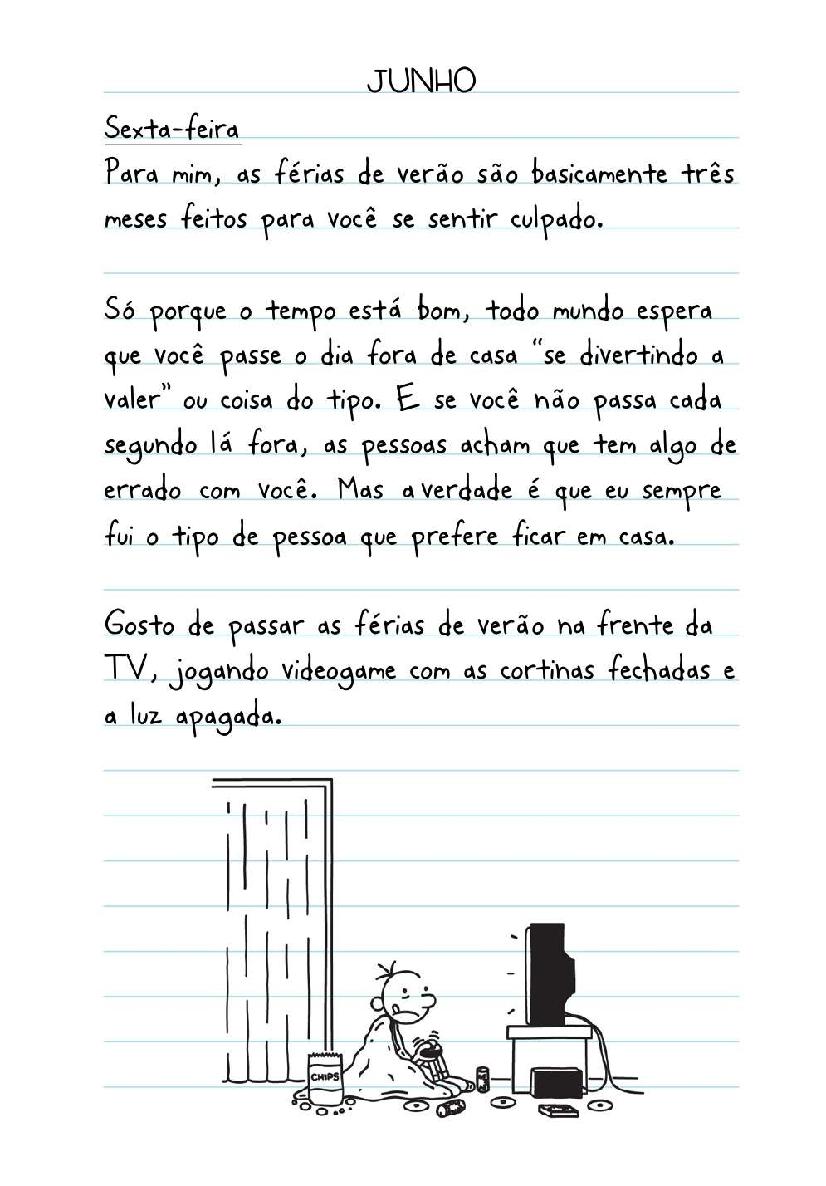 JUNHO
Sexta-feira
Para mim, as férias de verão são basicamente três
meses feitos para você se sentir culpado.
Só porque o tempo está bom, todo mundo espera
que você passe o dia fora de casa “se divertindo a
valer” ou coisa do tipo. E se você não passa cada
segundo lá fora, as pessoas acham que tem algo de
errado com você. Mas a verdade é que eu sempre
fui o tipo de pessoa que prefere ficar em casa.
Gosto de passar as férias de verão na frente da
TV, jogando videogame com as cortinas fechadas e
a luz apagada.
CHIPS